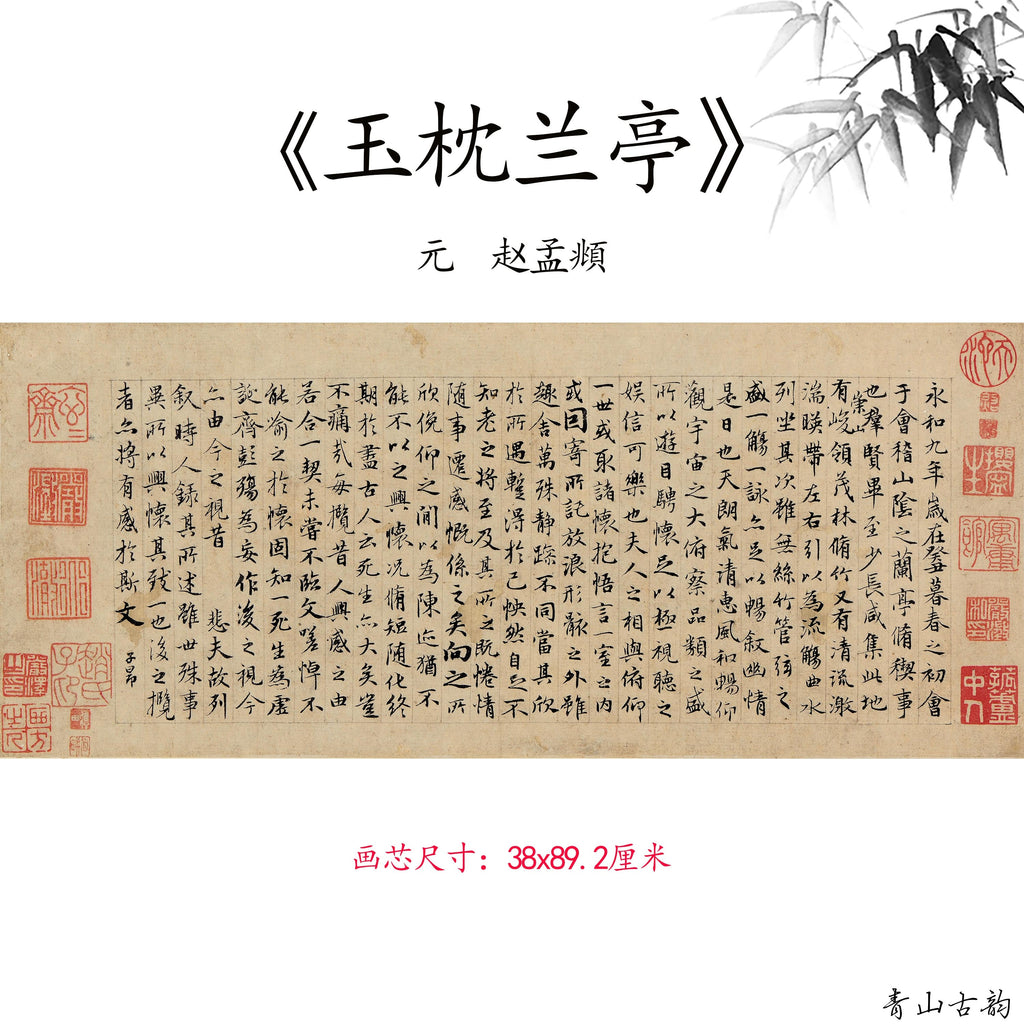 《玉枕兰亭》
元 赵孟頫
永和九年歲在癸丑暮春之初會
于會稽山陰之蘭亭脩稧事
也羣賢畢至少長咸集此地
有崇山峻領茂林脩竹又有清流激
湍暎帶左右引以為流觴曲水
列坐其次雖無絲竹管弦之
盛一觴一詠亦足以暢敘幽情
是日也天朗氣清惠風和暢仰
觀宇宙之大俯察品類之盛
所以遊目騁懷足以極視聽之
娛信可樂也夫人之相與俯仰
一世或取諸懷抱悟言一室之內
或因寄所託放浪形骸之外雖
趣舍萬殊静躁不同當其欣
於所遇蹔得於己怏然自足不
知老之將至及其所之既惓情
隨事遷感慨係之矣向之所
欣俛仰之閒以為陳迹猶不
能不以之興懷况脩短随化終
期於盡古人云死生亦大矣豈
不痛哉每攬昔人興感之由
若合一契未嘗不臨文嗟悼不
能喻之於懷固知一死生為虛
誕齊彭殤為妄作後之視今
亦由今之視昔 悲夫故列
敘時人錄其所述雖世殊事
異所以興懷其致一也後之攬
者亦將有感於斯文
子昂
画芯尺寸：38x89.2厘米
青山古韵